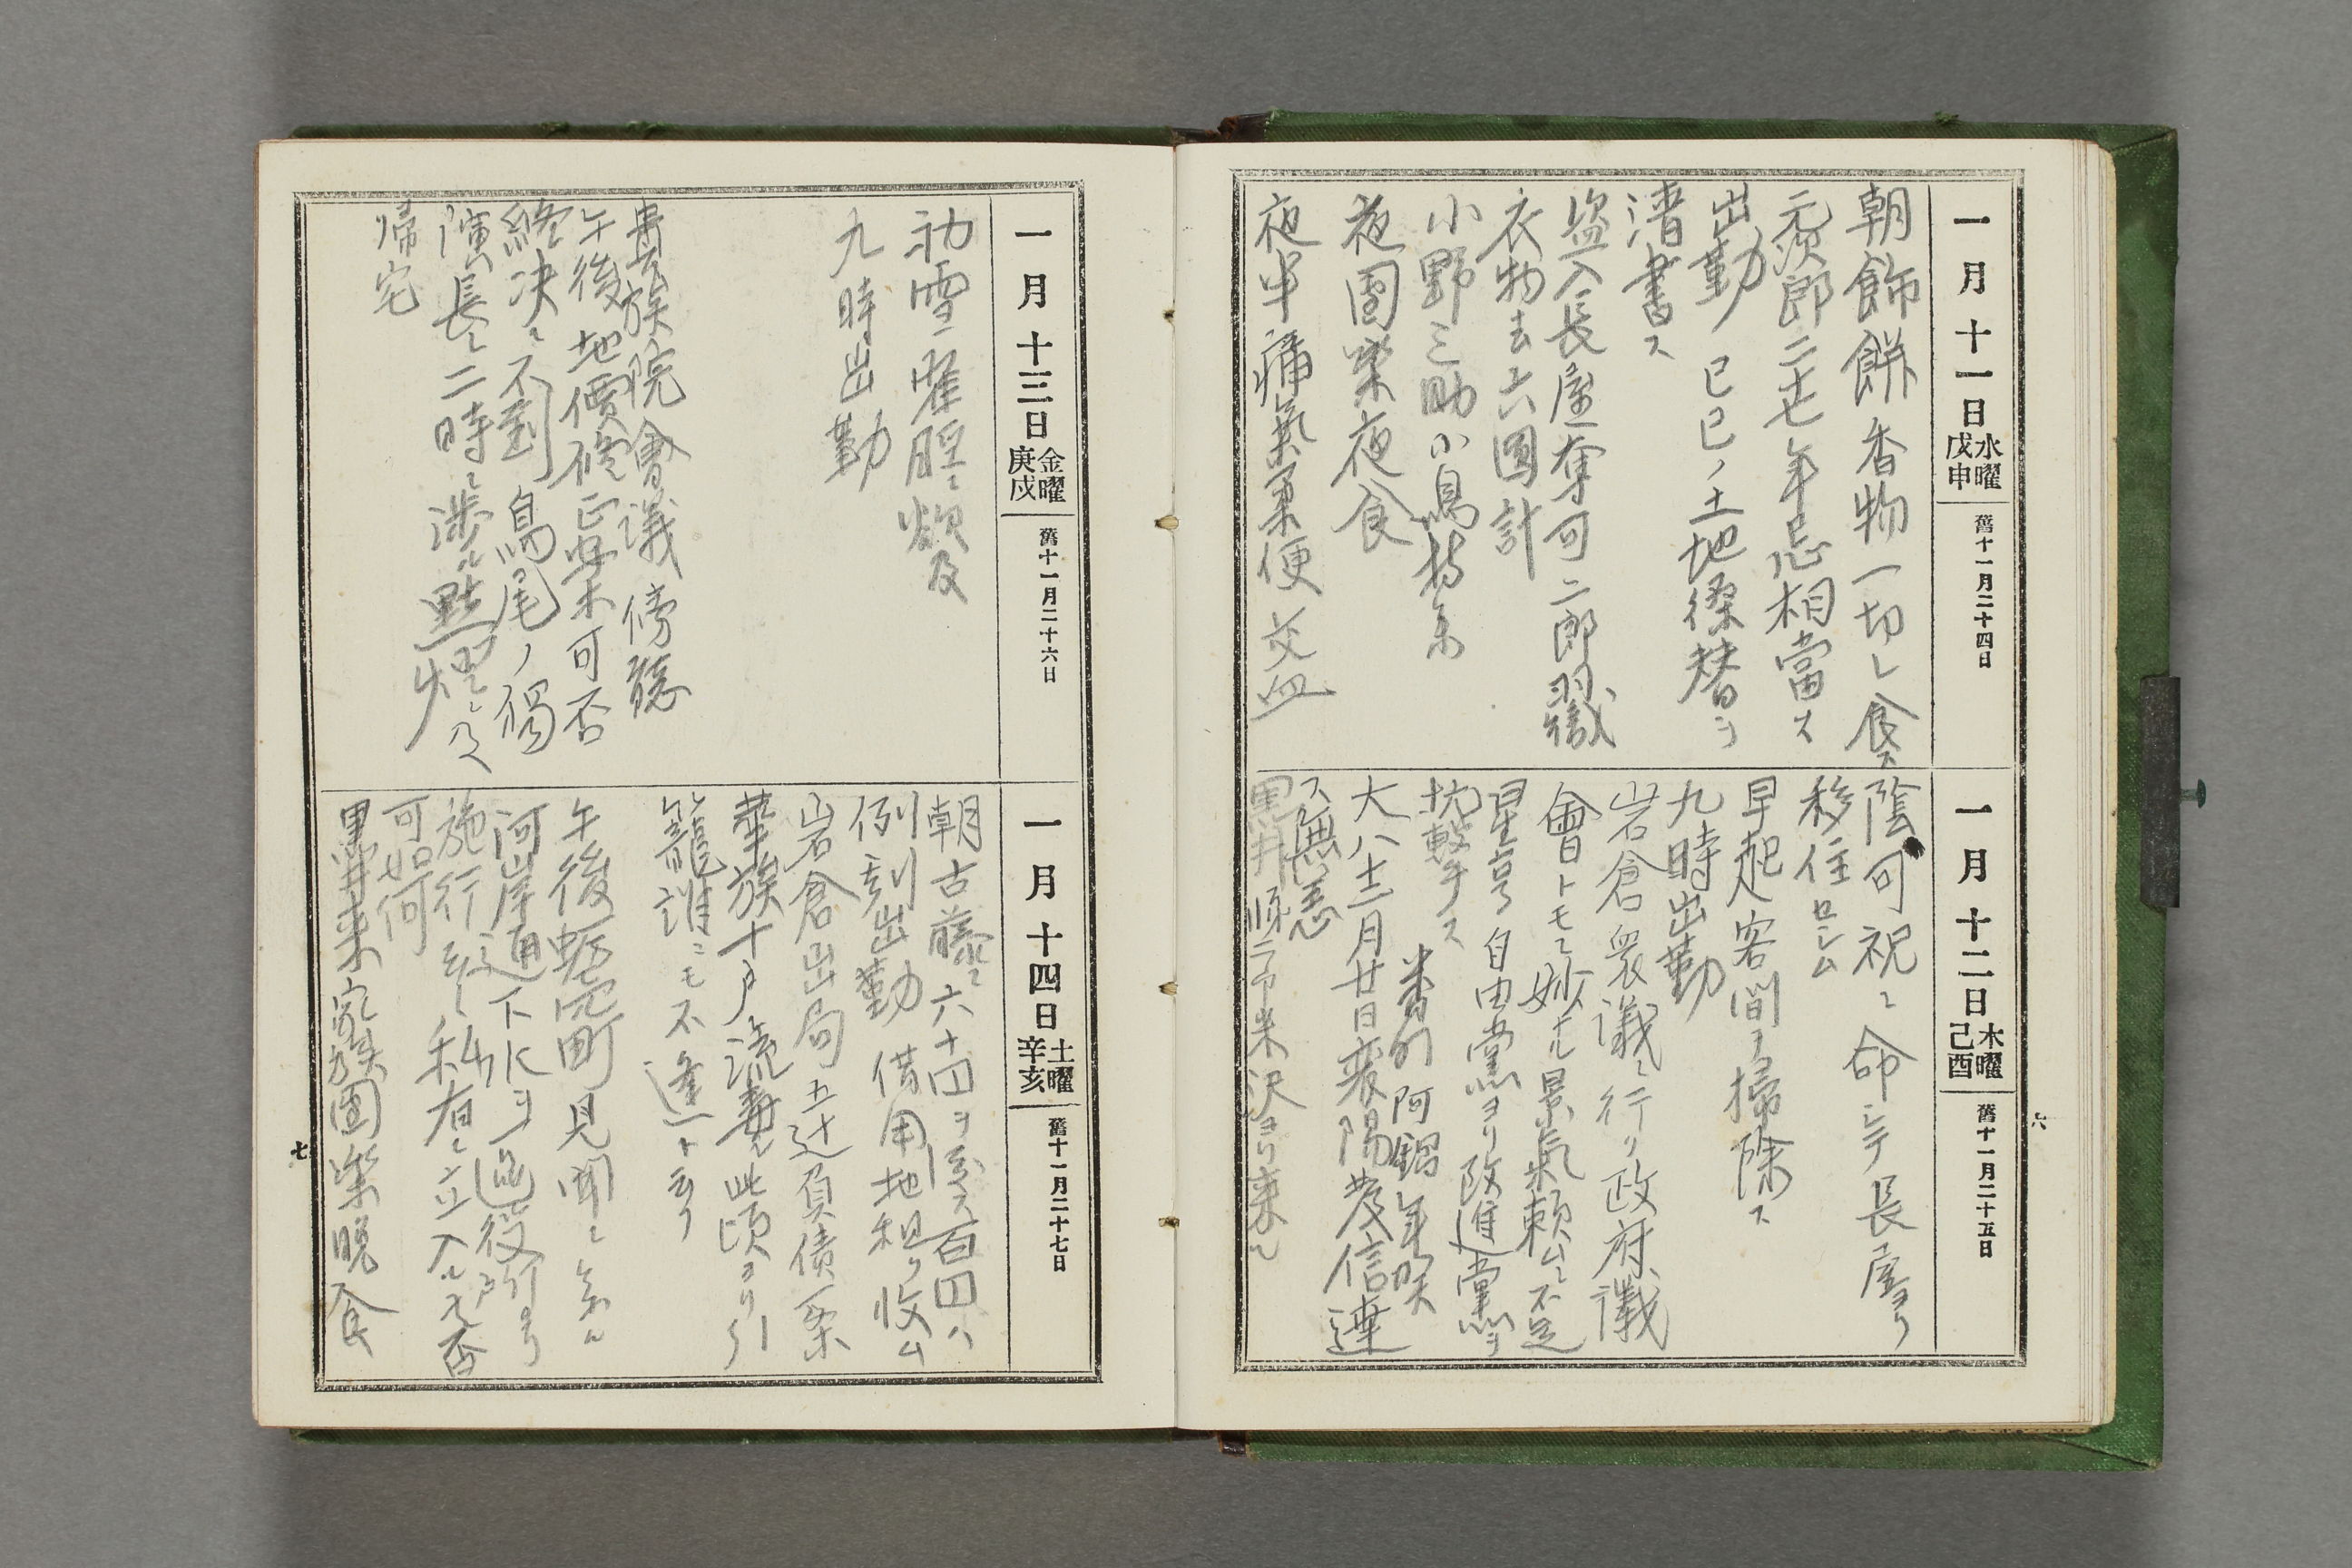 一月十一日 水曜 戊申 舊十一月二十四日
朝飾餅香物一切レ食ス
元次郎二十七年忌相當ス
出勤 已已ノ土地操替ヲ
淸書ス
盜入長屋奪可二郎羽織
衣物去六圓計
小野三助小鳥持参
夜團欒夜食
夜半痛氣裏便交血
一月十二日 木曜 己酉 舊十一月二十五日
陰 可祝ニ命シテ長屋ヨリ
移住セシム
早起客間ヲ掃除ス
九時出勤
岩倉衆議ニ行リ政府議
會トモニ妙ナル景氣賴ムニ不足
星亨自由黨ヨリ改進黨ヲ
抗擊ス
大八十二月廿日襄陽發信達
ス無恙
黒井 米沢ヨリ来ル
六
一月十三日 金曜 庚戌 舊十一月二十六日
初雪 脛ニ欲及
九時出勤
貴族院會議傍聽
午後地價修正案可否
終决ニ不到 鳥尾ノ獨
演長ク二時ニ渉ル點燈ニ及
帰宅
一月十四日 土曜 辛亥 舊十一月二十七日
朝古藤ニ六十四ヲ 百四八
例刻出勤 借用地租ヲ收ム
岩倉出局五辻負債一条
華族十戶流毒此頃ヨリ引
籠誰ニモ不逢ト云フ
午後蛎売町見聞ニ
河岸通下水ヲ 役所ヨリ
施行 私有ニ立入ルモ否
可如何
黒井来家族團欒晩食
七